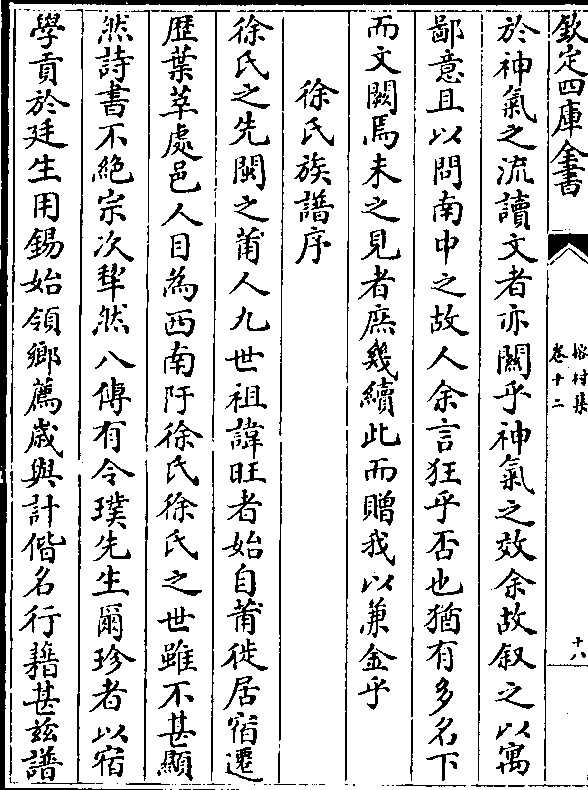 欽定四庫全書
榕村集
卷十二
十八
於神氣之流讀文者亦關乎神氣之效余故叙之以寓
鄙意且以問南中之故人余言狂乎否也猶有多名下
而文闕焉未之見者庶幾續此而贈我以兼金乎
徐氏族譜序
徐氏之先閩之莆人九世祖諱旺者始自莆徙居宿遷
歴葉萃處邑人目為西南阡徐氏徐氏之世雖不甚顯
然詩書不絶宗次犂然八傳有令璞先生爾珍者以宿
學貢於廷生用錫始領鄉薦嵗與計偕名行籍甚兹譜